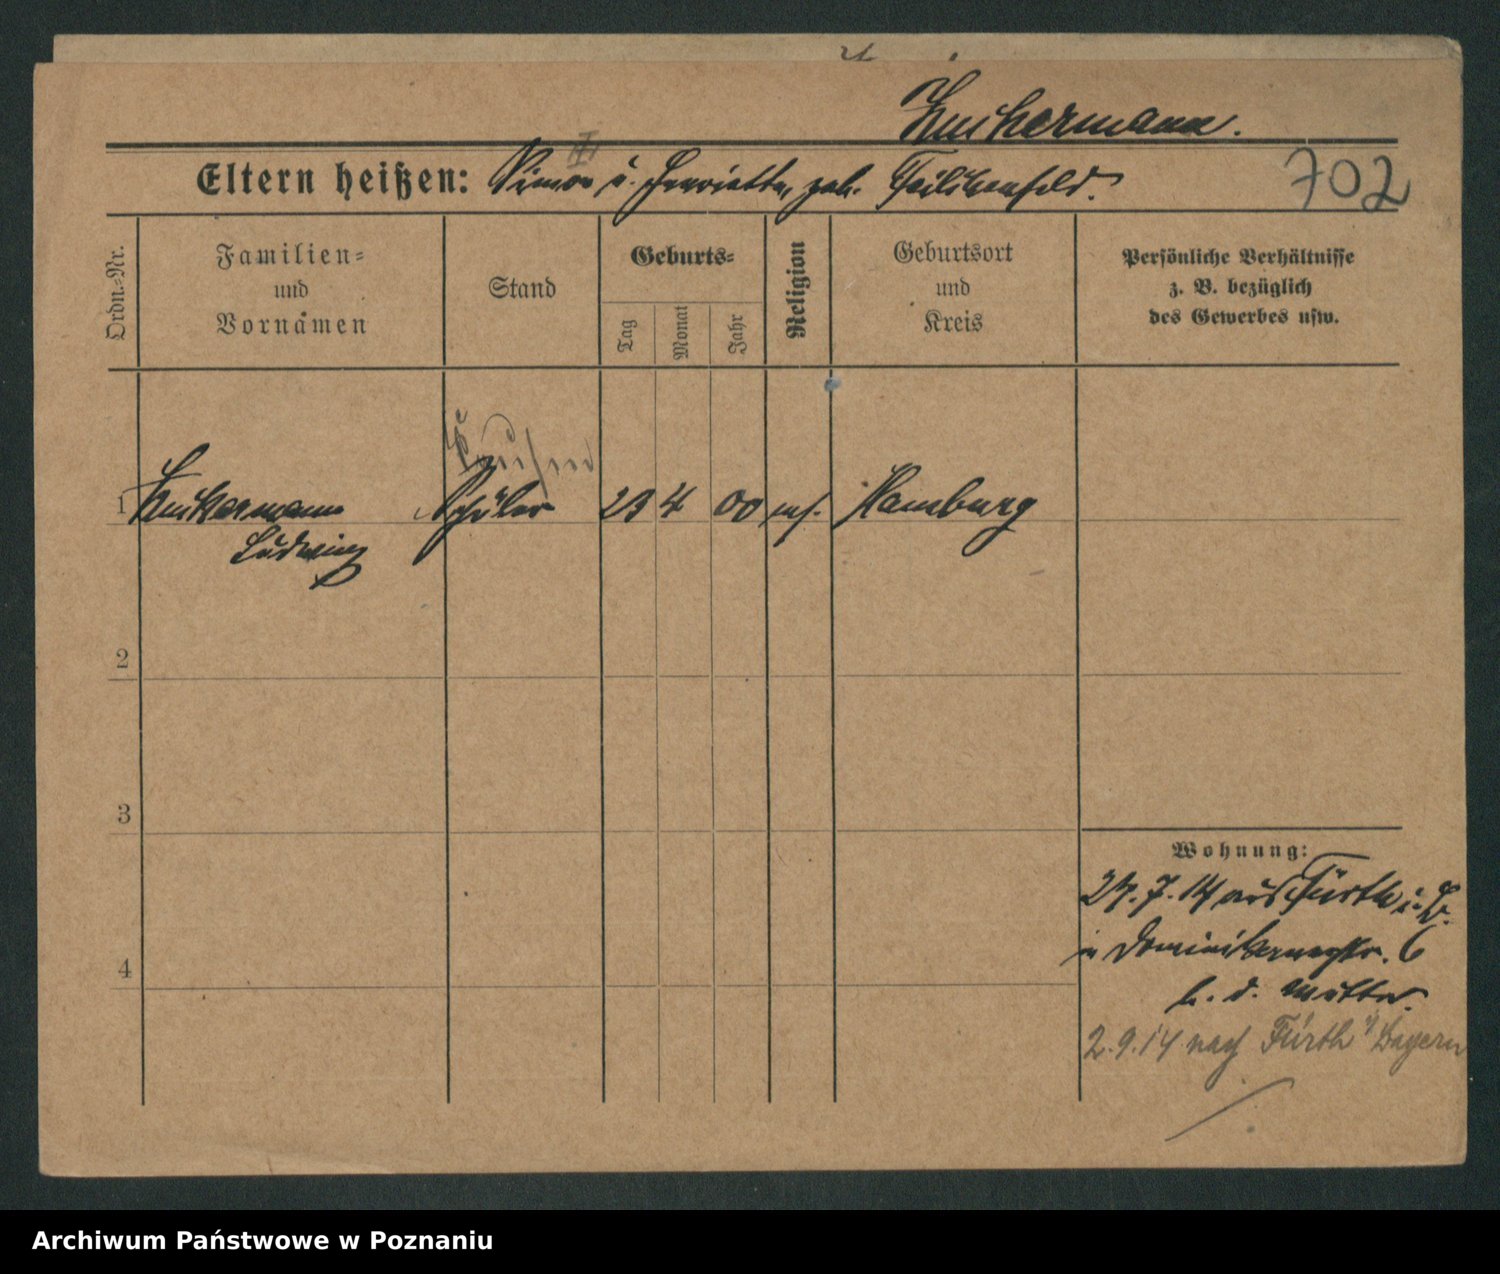 Zuckermann.
Eltern heißen: Simon u. Henriette, geb. Feilchenfeld.
702
Ordn.=Nr.
Familien=
und
Vornamen
Stand
Geburts=
Tag
Monat
Jahr
Religion
Geburtsort
und
Kreis
Persönliche Verhältnisse
z. B. bezüglich
des Gewerbes usw.
Preußen
1 Zuckermann Schüler 23 4 00 mos. Hamburg
Ludwig
2
3
4
Wohnung:
27. 7. 14 aus Fürth i. B.
in Dominikanerstr. 6
b. d. Mutter.
2. 9. 14 nach Fürth i/ Bayern
Archiwum Państwowe w Poznaniu